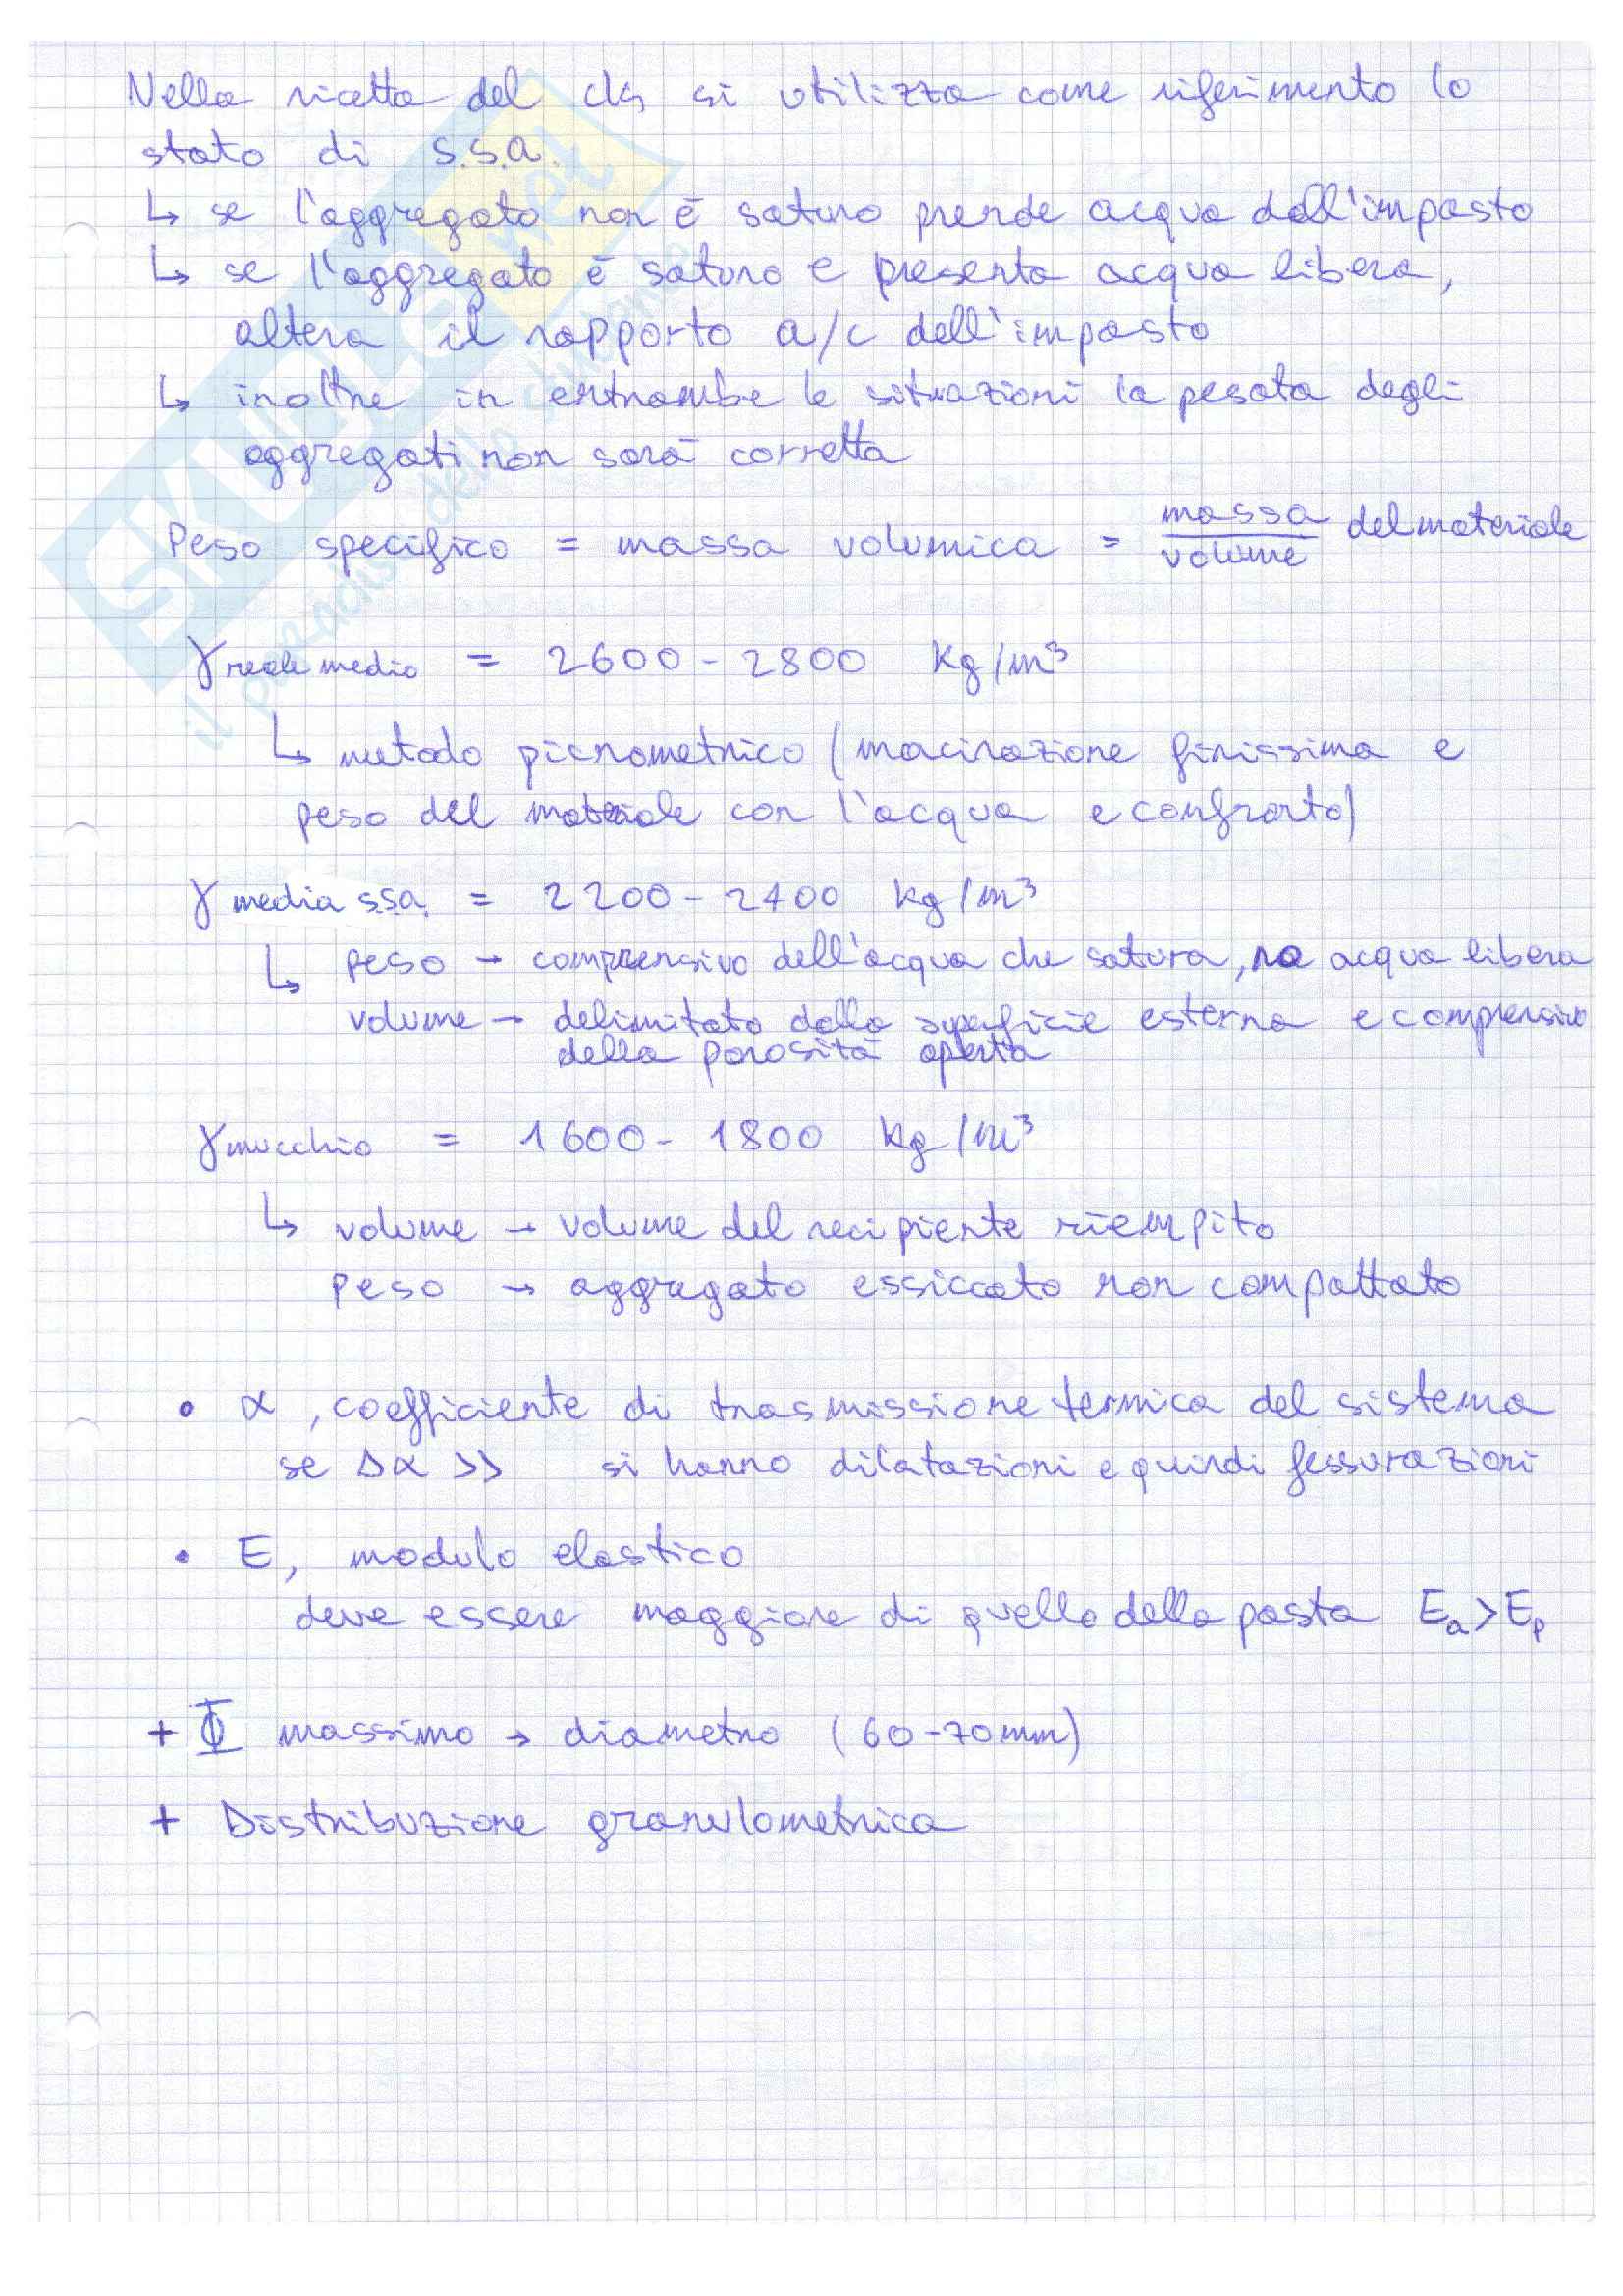 Nella ricetta del cls si utilizza come riferimento lo
stato di s.s.a.
↳ se l'aggregato non è saturo prende acqua dall'impasto
↳ se l'aggregato è saturo e presenta acqua libera,
altera il rapporto a/c dell'impasto
↳ inoltre in entrambe le situazioni la pesata degli
aggregati non sarà corretta
Peso specifico = massa volumica = massa/volume del materiale
γ reale medio = 2600 - 2800 kg/m³
↳ metodo picnometrico (macinazione finissima e
peso del materiale con l'acqua e confronto)
γ media s.s.a. = 2200 - 2400 kg/m³
↳ peso → comprensivo dell'acqua che satura, no acqua libera
volume → delimitato dalla superficie esterna e comprensivo
della porosità aperta
γ mucchio = 1600 - 1800 kg/m³
↳ volume → volume del recipiente riempito
peso → aggregato essiccato non compattato
• α, coefficiente di trasmissione termica del sistema
se Δα >> si hanno dilatazioni e quindi fessurazioni
• E, modulo elastico
deve essere maggiore di quello della pasta Ea > Ep
+ Φ massimo → diametro (60-70mm)
+ Distribuzione granulometrica
SKUOLA.net
il paradiso dello studente